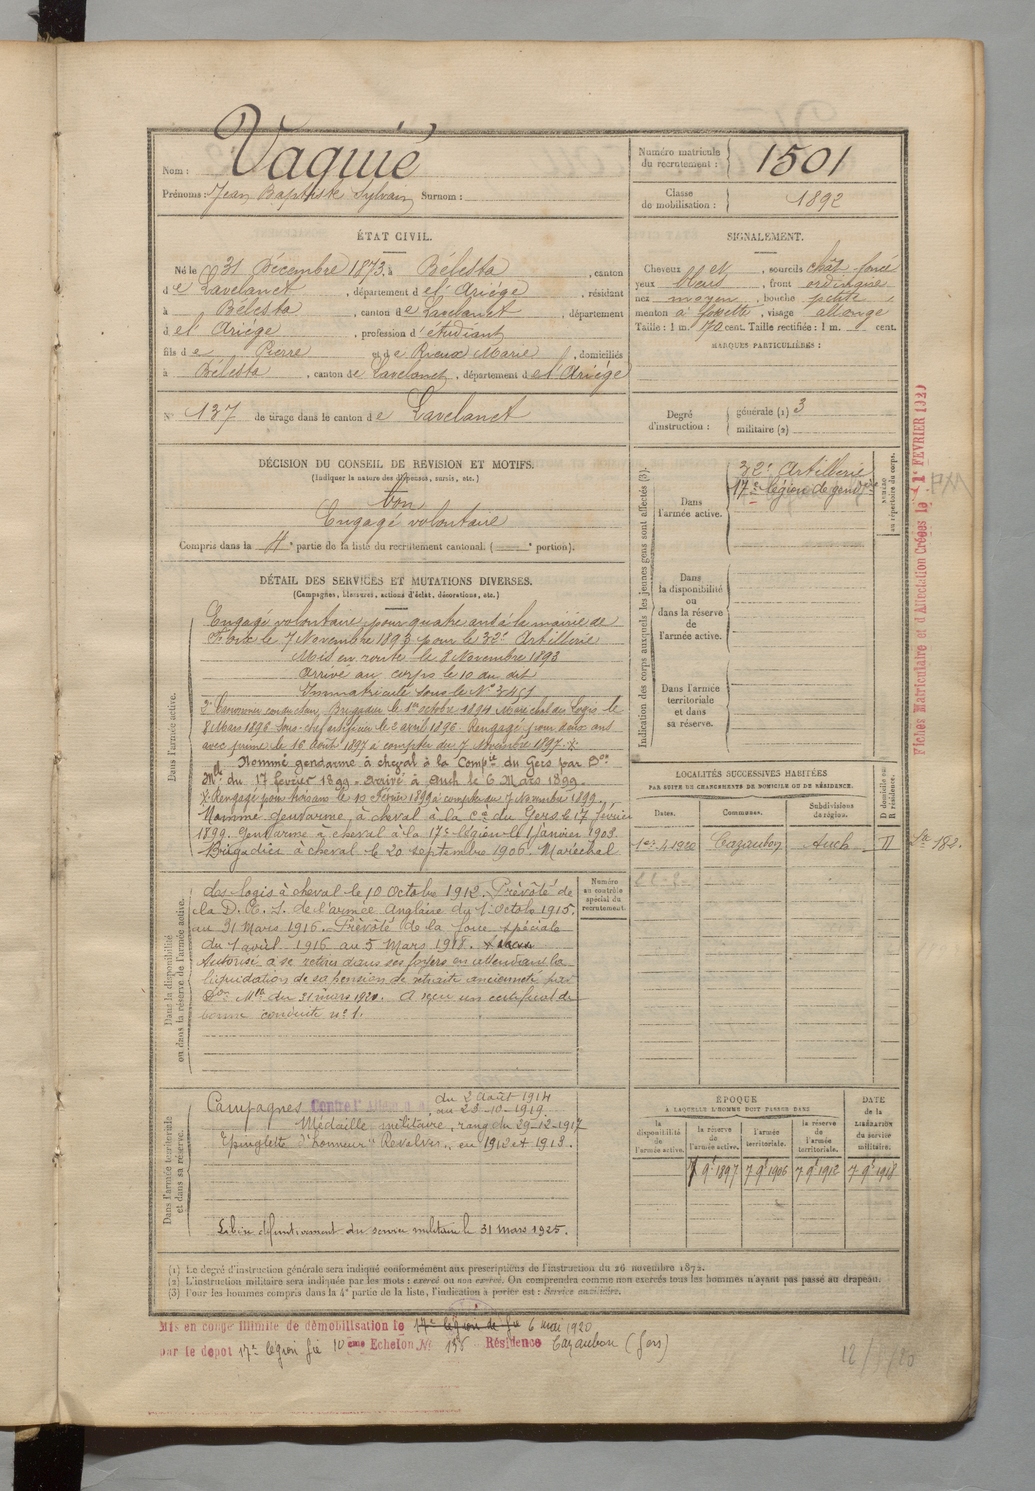 Nom : Vaquié
Prénoms : Jean Baptiste Sylvain Surnom :
Numéro matricule du recrutement : 1501
Classe de mobilisation : 1892
ÉTAT CIVIL.
Né le 31 Décembre 1873, à Bélesta, canton
de Lavelanet, département de l'Ariége, résidant
à Bélesta, canton de Lavelanet, département
de l'Ariége, profession d'étudiant
fils de Pierre et de Rieux Marie, domiciliés
à Bélesta, canton de Lavelanet, département de l'Ariége
N° 137 de tirage dans le canton de Lavelanet
SIGNALEMENT.
Cheveux et, sourcils chât. foncé
yeux bleus, front ordinaire
nez moyen, bouche petite
menton à fossette, visage allongé
Taille : 1 m. 70 cent. Taille rectifiée : 1 m. cent.
MARQUES PARTICULIÈRES :
Degré d'instruction : générale (1) 3
militaire (2)
DÉCISION DU CONSEIL DE RÉVISION ET MOTIFS.
(Indiquer la nature des dispenses, sursis, etc.)
bon
Engagé volontaire
Compris dans la 4e partie de la liste du recrutement cantonal. ( e portion).
DÉTAIL DES SERVICES ET MUTATIONS DIVERSES.
(Campagnes, blessures, actions d'éclat, décorations, etc.)
Dans l'armée active.
Engagé volontaire pour quatre ans à la mairie de
Foix le 7 Novembre 1893 pour le 32e Artillerie
Mis en route le 8 Novembre 1893
Arrivé au corps le 10 au dit
Immatriculé sous le N° 3451
2e Canonnier conducteur, Brigadier le 1er octobre 1894 Maréchal des Logis le
8 Mars 1896 Sous-chef artificier le 2 avril 1896. Rengagé pour deux ans
avec prime le 16 Août 1897 à compter du 7 Novembre 1897. X
Nommé gendarme à cheval à la Compie du Gers par Don
Mlle du 17 février 1899. Arrivé à Auch le 6 Mars 1899.
X Rengagé pour trois ans le 10 Février 1899 à compter du 7 Novembre 1899.
Nommé Gendarme à cheval à la Cie du Gers le 17 février
1899. Gendarme à cheval à la 17e légion le 1 janvier 1903.
Brigadier à cheval le 20 septembre 1906. Maréchal
Dans la disponibilité ou dans la réserve de l'armée active.
des logis à cheval le 10 Octobre 1912. Prévôté de
la D. E. S. de l'armée Anglaise du 1 Octobre 1915,
au 31 Mars 1916. Prévôté de la force spéciale
du 1 avril 1916 au 5 Mars 1918.
Autorisé à se retirer dans ses foyers en attendant la
liquidation de sa pension de retraite ancienneté par
Don Mlle du 21 mars 1920. A reçu un certificat de
bonne conduite n° 1.
Numéro au contrôle spécial du recrutement.
Dans l'armée territoriale et dans sa réserve.
Campagnes Contre l'Allemagne du 2 Août 1914
au 23-10-1919
Médaille militaire, rang du 29-12-1917
Epinglette d'honneur Revolver, en 1912 et 1913.
Libéré définitivement du service militaire le 31 mars 1925.
Indication des corps auxquels les jeunes gens sont affectés (3).
Dans l'armée active.
32e Artillerie
17e légion de gendie
Numéro au répertoire du corps.
Dans la disponibilité ou dans la réserve de l'armée active.
Dans l'armée territoriale et dans sa réserve.
LOCALITÉS SUCCESSIVES HABITÉES
PAR SUITE DE CHANGEMENTS DE DOMICILE OU DE RÉSIDENCE.
Dates. Communes. Subdivisions de région. D domicile ou R résidence.
1er-4-1920 Cazaubon Auch D
182.
ÉPOQUE
À LAQUELLE L'HOMME DOIT PASSER DANS
la disponibilité de l'armée active. la réserve de l'armée active. l'armée territoriale. la réserve de l'armée territoriale. DATE de la LIBÉRATION du service militaire.
7 9e 1897 7 9e 1906 7 9e 1912 7 9e 1918
(1) Le degré d'instruction générale sera indiqué conformément aux prescriptions de l'instruction du 26 novembre 1872.
(2) L'instruction militaire sera indiquée par les mots : exercé ou non exercé. On comprendra comme non exercés tous les hommes n'ayant pas passé au drapeau.
(3) Pour les hommes compris dans la 4e partie de la liste, l'indication à porter est : Service auxiliaire.
Mis en congé illimité de démobilisation le 17e légion de 6 mai 1920
par le dépôt 17e légion gie 10ème Echelon, N° 138 Résidence Cazaubon (Gers)
Fiches Matriculaire et d'Affectation Créées le 1er FÉVRIER 192